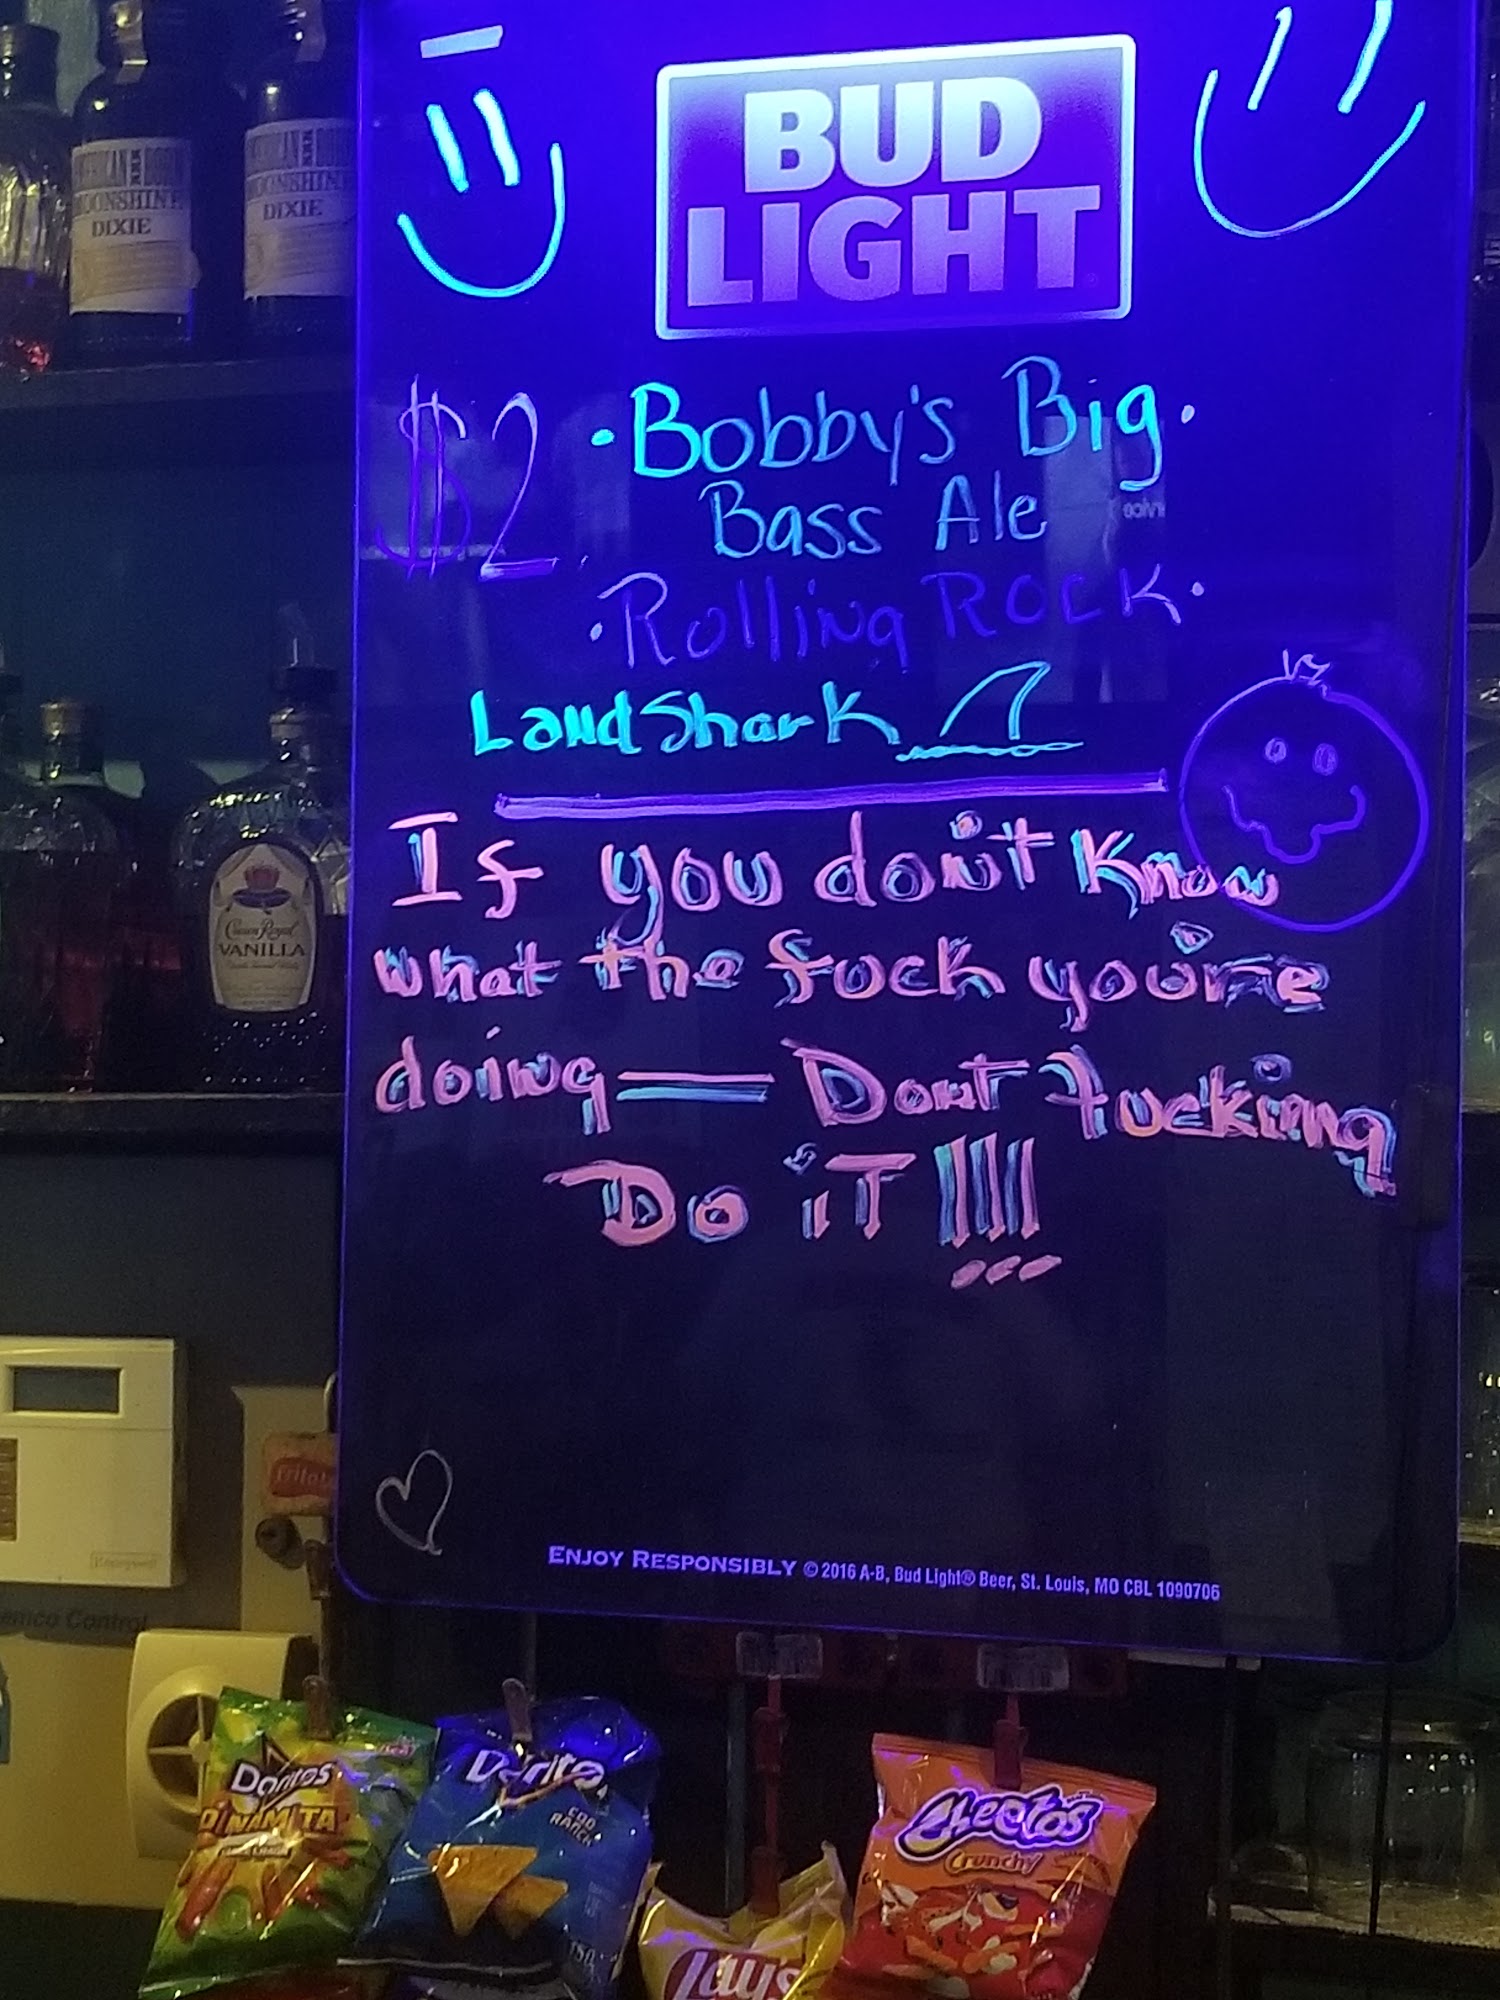 BUD
LIGHT
$2
• Bobby's Big •
Bass Ale
• Rolling ROCK •
LandShark
If you don't Know
what the fuck you're
doing — Dont Fucking
Do iT !!!!
ENJOY RESPONSIBLY © 2016 A-B, Bud Light® Beer, St. Louis, MO CBL 1090706
MOONSHINE
DIXIE
MOONSHINE
DIXIE
Crown Royal
VANILLA
Honeywell
Control
Doritos
DINAMITA
Doritos
COOL
RANCH
Lay's
Cheetos
Crunchy